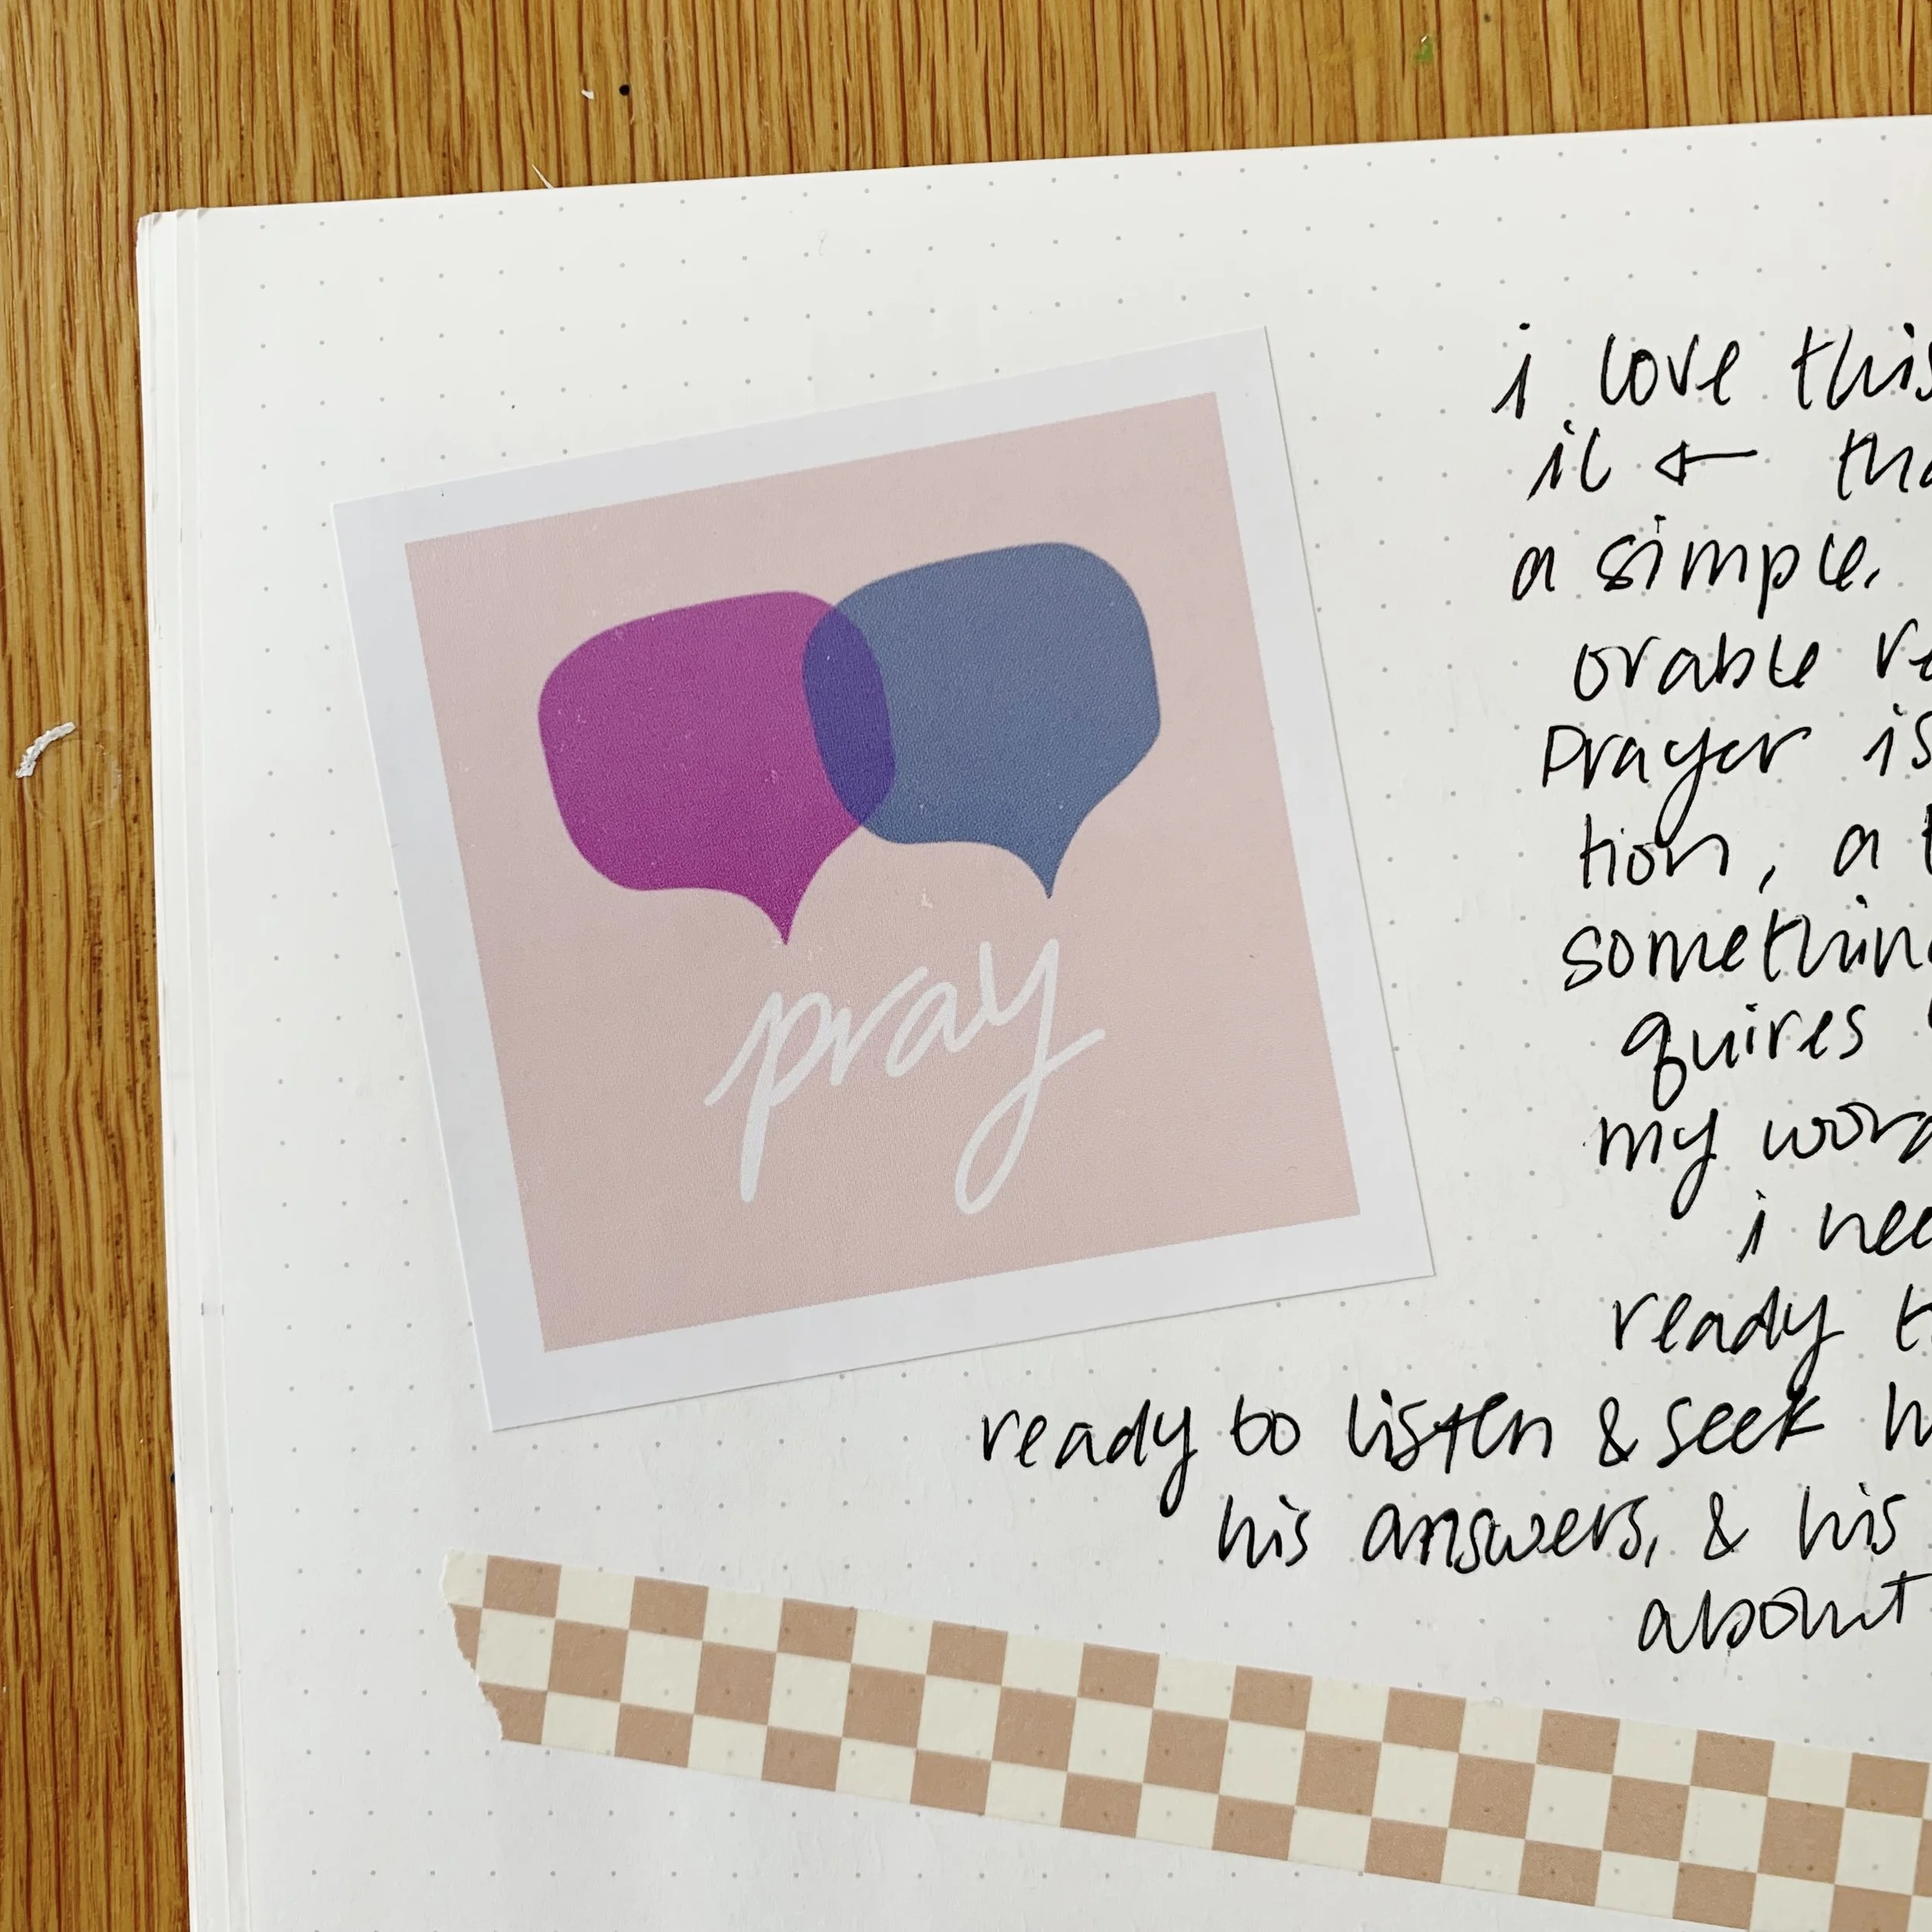 pray
i love this
il ← tha
a simple.
orable re
Prayer is
tion, a t
somethin
quires
my word
i nee
ready t
ready to listen & seek h
his answers, & his
about